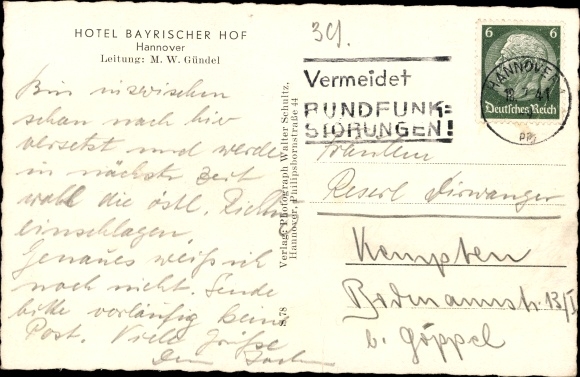 HOTEL BAYRISCHER HOF
Hannover
Leitung: M. W. Gündel
Bin inzwischen
schon nach hier
versetzt und werde
in nächster Zeit
wohl die östl. Richtg
einschlagen.
Genaues weiß ich
noch nicht. Sende
bitte vorläufig keine
Post. Viele Grüße
Dein
Verlag: Photograph Walter Schultz,
Hannover, Philipsbornstraße 44
S.78
39.
Vermeidet
RUNDFUNK=
STÖRUNGEN!
HANNOVER
41
6 6
Deutsches Reich
Fräulein
Reserl Dirwanger
Kempten
Bodmannstr. 13/I
b. Göppel